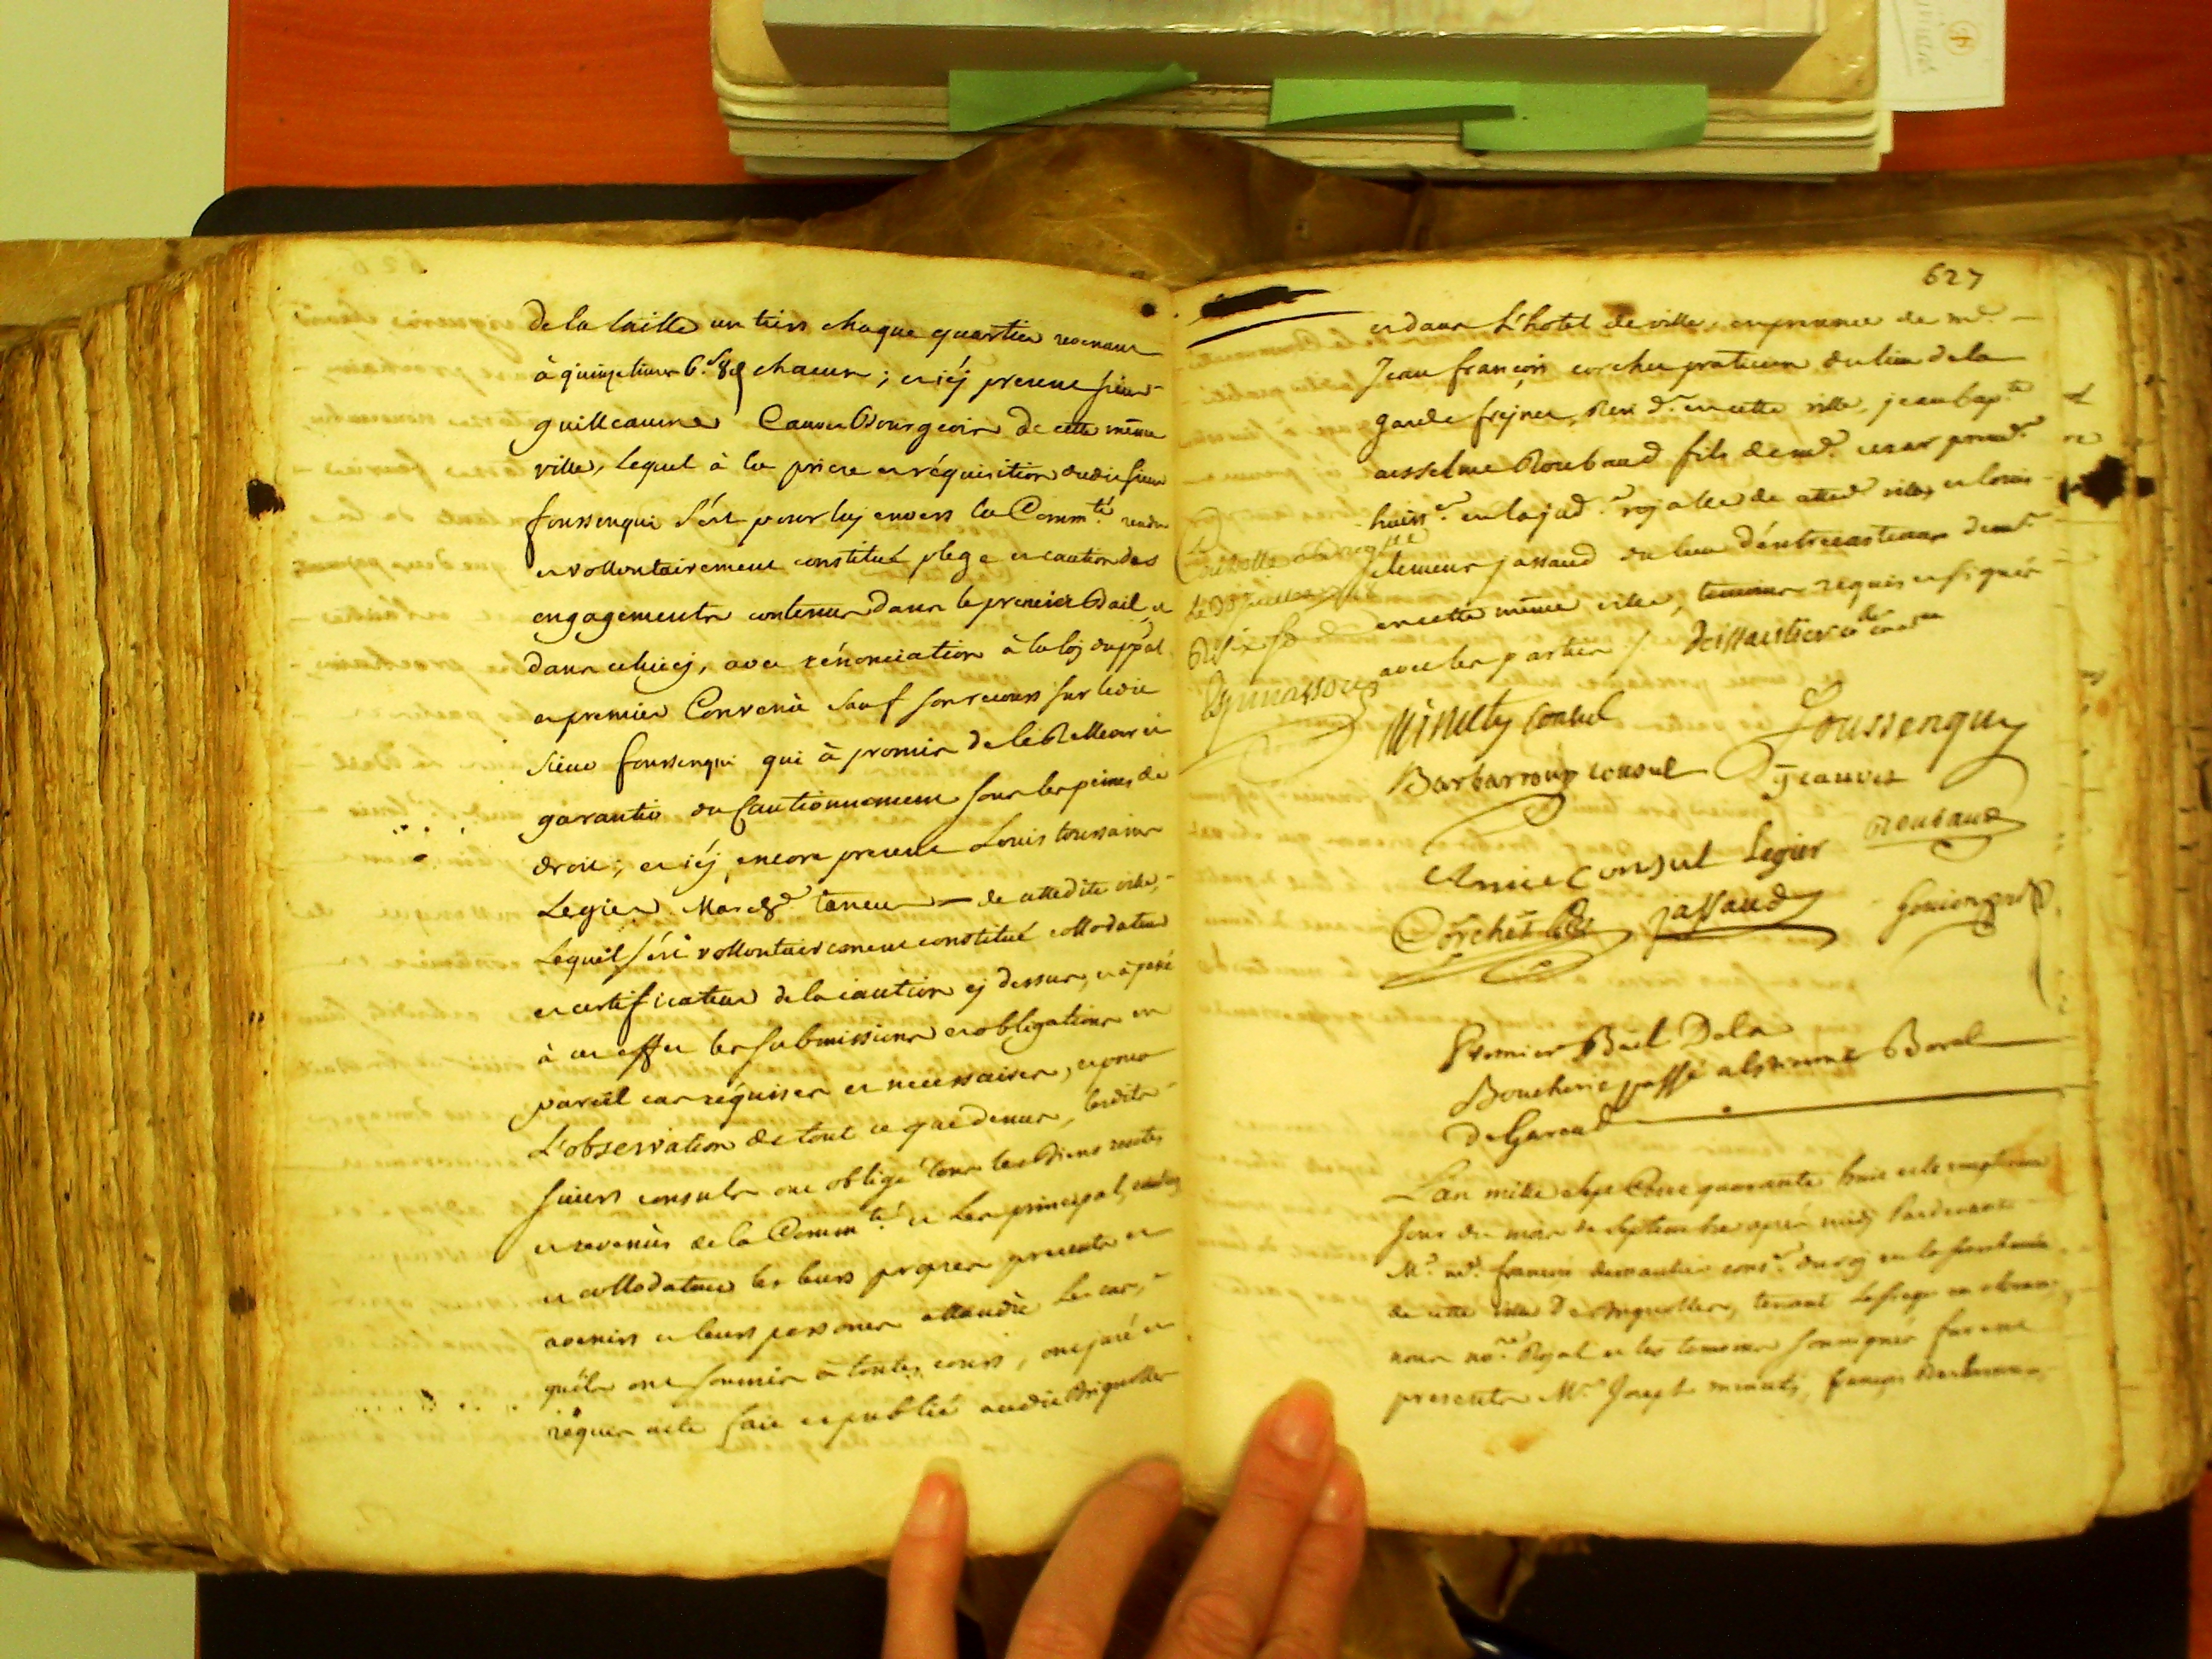 de la taille un tiers chaque quartier revenant
à quinze livres 6.s 8d chacun ; et icÿ present sieur
guilleaume Cauvet Bourgeois de cette même
ville, lequel à la priere et réquisition dudit sieur
foussenqui s'ést pour luy envers la Comm.té rendu
et vollontairement constitué plege et caution des
engagements contenus dans le premier Bail, et
dans celuicy, avec rénonciation à la loy du ppal
et premier Convenù sauf son recours sur ledit
sieur foussenqui qui à promis de le Rellever et
garantir du Cautionnement sous les peines de
droit ; et icÿ encore present Louis toussaint
Legier March.d taneur de cettedite ville,
Lequel s'ést vollontairement constitué collodateur
et certifficateur de la caution cy dessus, et à passé
à cet effet les submissions et obligations en
pareil cas réquises et necessaires, et pour
L'observation de tout ce que dessus, lesdits
sieurs consuls ont obligé tous les Biens rentes
et revenùs de la Comm.té et les principal, caution
et collodateur les leurs propres presents et
avenirs et leurs personnes attandù le cas,
qu'ils ont soumis à toutes cours, ont juré et
réquis acte fait et publié audit Brignolles
627
et dans L'hotel de ville, en presence de m.e
Jean françois corcher praticien du lieu de la
garde freinet, Resi d.t en cette ville, jean bap.te
ansselme Roubaud fils de m.e cesar
huiss.r en la jud.re royalle de cetted. ville, et louis
clement jassaud du lieu d'éntrecasteaux dem.t
en cette même ville, temoins requis et signés
avec les parties /.
Controllé
Minuty Consul
Foussenquy
Barbarroux consul
g cauvet
Amic Consul
Legier
Roubaud
Corcher
jassaud
Premier Bail De la
Boucherie passé a Borel
De Gareoult
L'an mille sept Cent quarante huit et le vingt
jour du mois de Septembre aprés midy Pardevant
M.e m.e françois cons.r du roy en la
de cette ville De Brignolles, tenant
nous no.re Royal et les temoins soussignés furent
presents M.e Joseph minuty, françois Barbarroux,